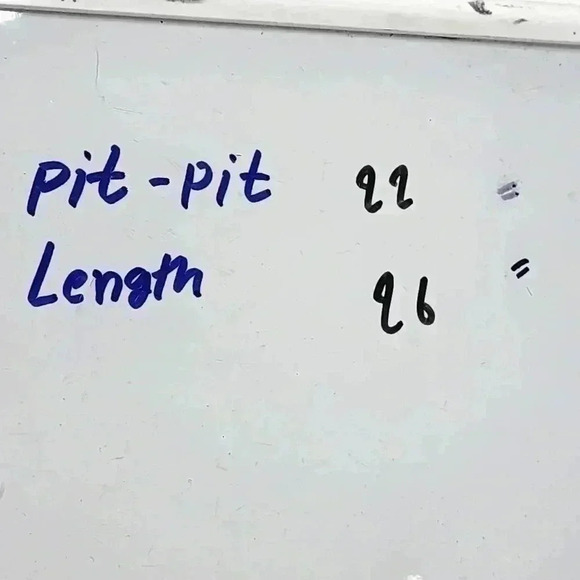 Pit-pit 22 "
Length 26 "